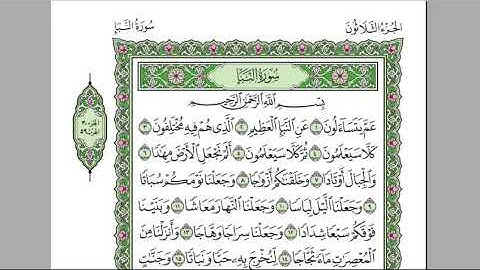 الجزء الثلاثون
سورة النبإ
سُورَةُ النَّبَإِ
بِسْمِ اللَّهِ الرَّحْمَٰنِ الرَّحِيمِ
عَمَّ يَتَسَاءَلُونَ ١ عَنِ النَّبَإِ الْعَظِيمِ ٢ الَّذِي هُمْ فِيهِ مُخْتَلِفُونَ ٣
كَلَّا سَيَعْلَمُونَ ٤ ثُمَّ كَلَّا سَيَعْلَمُونَ ٥ أَلَمْ نَجْعَلِ الْأَرْضَ مِهَٰدًا ٦
وَالْجِبَالَ أَوْتَادًا ٧ وَخَلَقْنَٰكُمْ أَزْوَٰجًا ٨ وَجَعَلْنَا نَوْمَكُمْ سُبَاتًا
٩ وَجَعَلْنَا اللَّيْلَ لِبَاسًا ١٠ وَجَعَلْنَا النَّهَارَ مَعَاشًا ١١ وَبَنَيْنَا
فَوْقَكُمْ سَبْعًا شِدَادًا ١٢ وَجَعَلْنَا سِرَاجًا وَهَّاجًا ١٣ وَأَنزَلْنَا مِنَ
الْمُعْصِرَٰتِ مَاءً ثَجَّاجًا ١٤ لِّنُخْرِجَ بِهِ حَبًّا وَنَبَاتًا ١٥ وَجَنَّٰتٍ